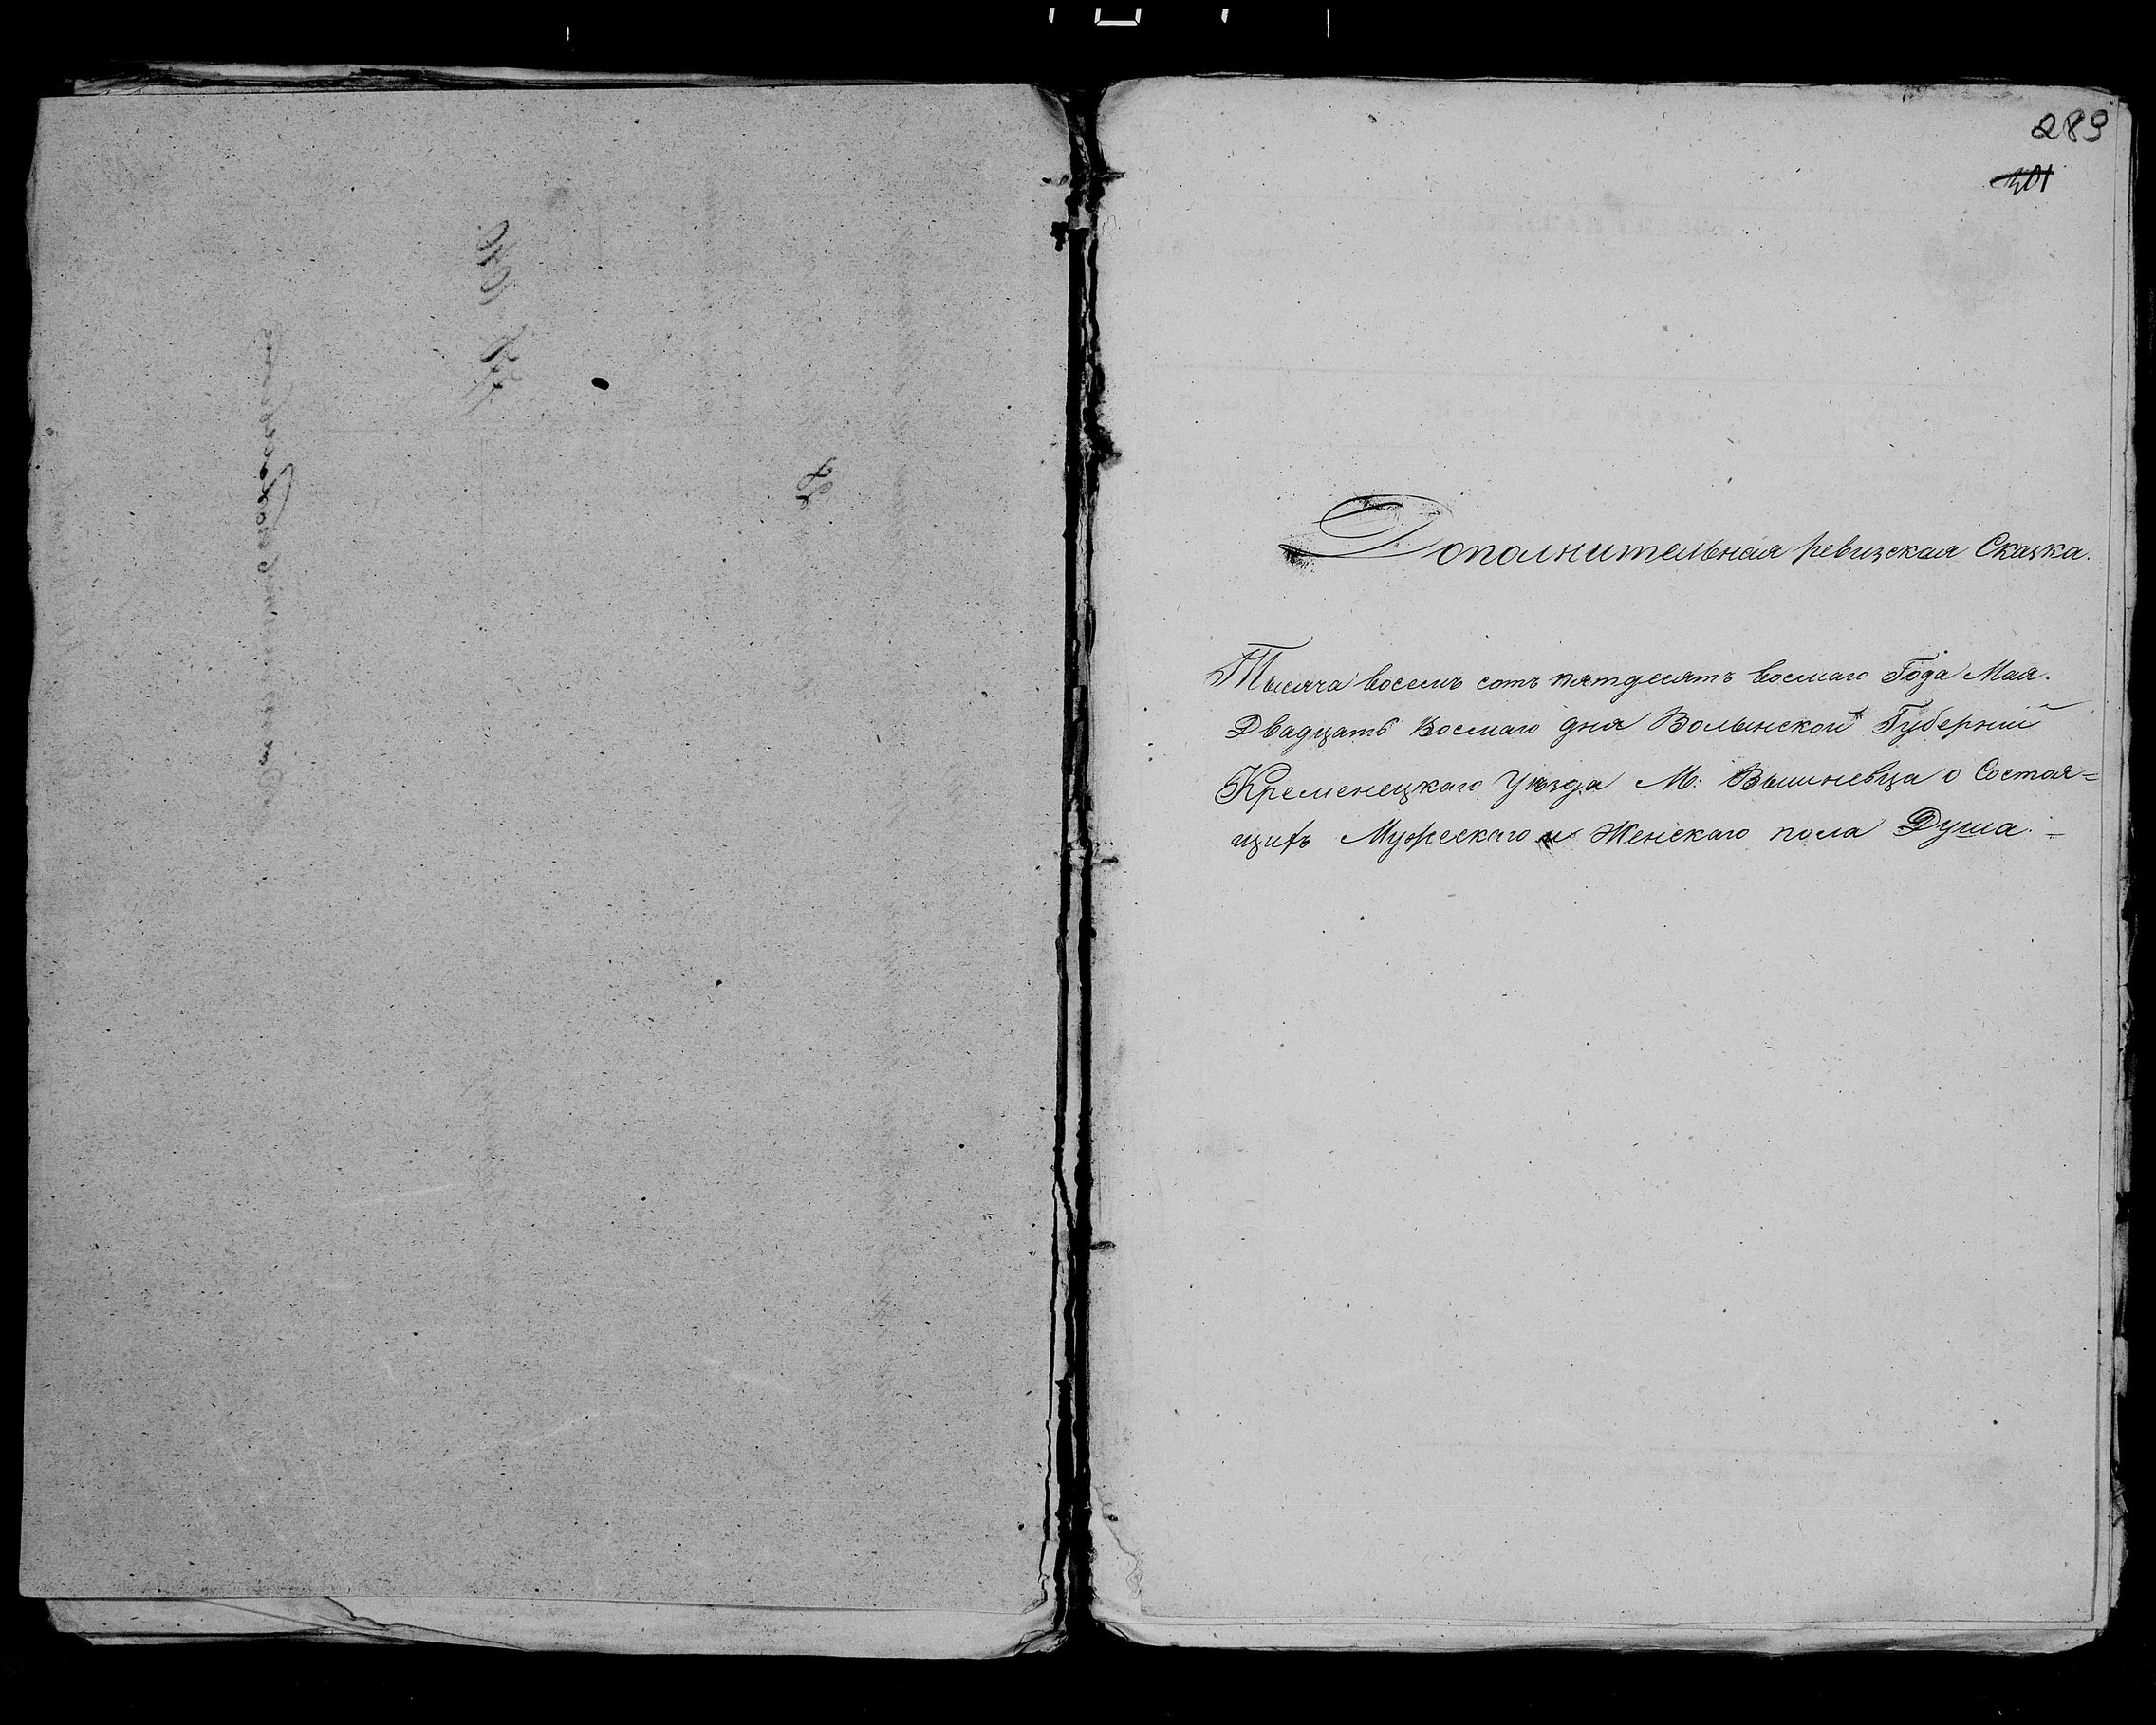 289
301
Дополнительная ревизская Сказка.
Тысяча восемъ сотъ пятдесятъ восмаго Года Мая.
Двадцать Восмаго дня Волынской Губерніи
Кременецкаго Уѣзда М: Вышневца о Состоя=
щихъ Мужескаго и Женскаго пола Душа. –